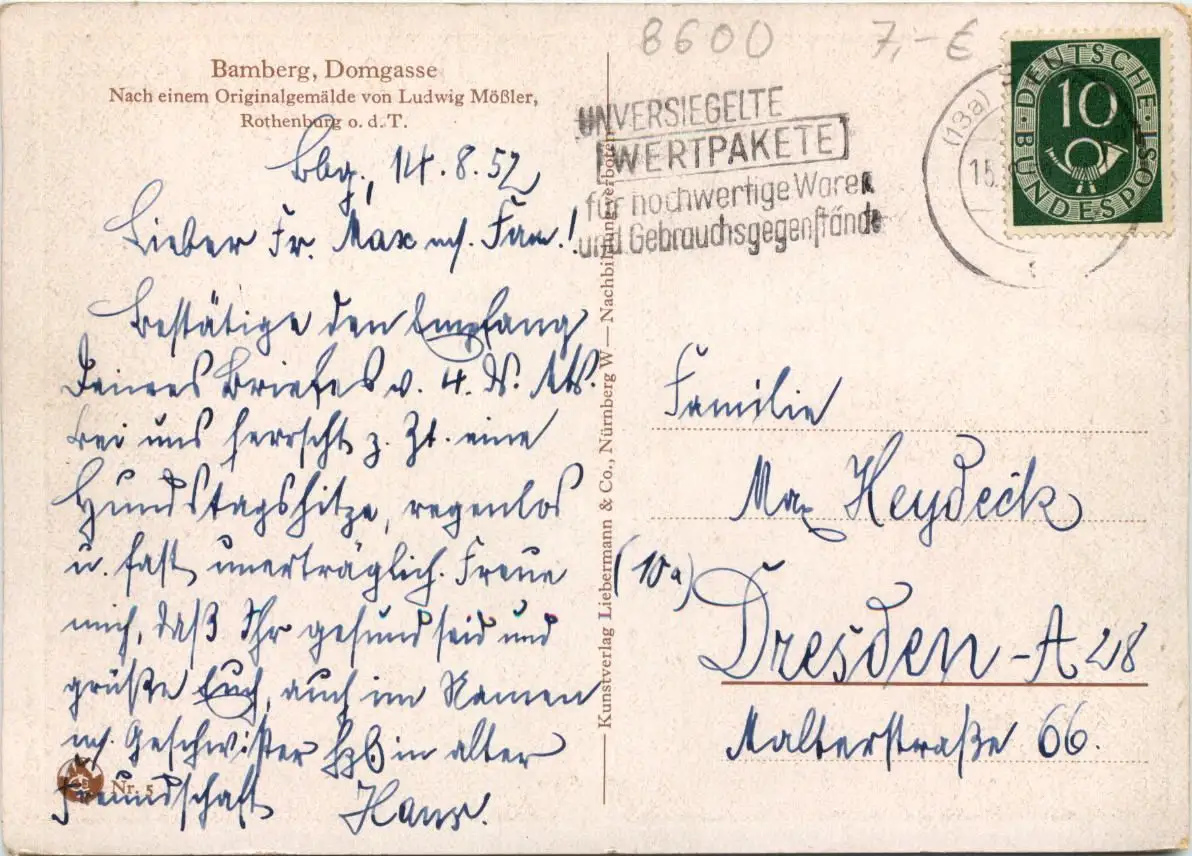 Bamberg, Domgasse
Nach einem Originalgemälde von Ludwig Mößler,
Rothenburg o. d. T.
Bbg., 14.8.52
Lieber Fr. Max u. Fam.!
Bestätige den Empfang
Deines Briefes v. 4. ds. Mts.
Bei uns herrscht z. Zt. eine
Hundstagshitze, regenlos
u. fast unerträglich. Freue
mich, daß Ihr gesund seid und
grüße Euch, auch im Namen
m. Geschwister in alter
Freundschaft Hans.
Nr. 5
Kunstverlag Liebermann & Co., Nürnberg W — Nachbildung verboten
8600 7,- €
UNVERSIEGELTE
WERTPAKETE
für hochwertige Waren
und Gebrauchsgegenstände
(13a)
15.
DEUTSCHE
BUNDESPOST
10
Familie
Max Heydeck
(10a)
Dresden-A 28
Malterstraße 66.